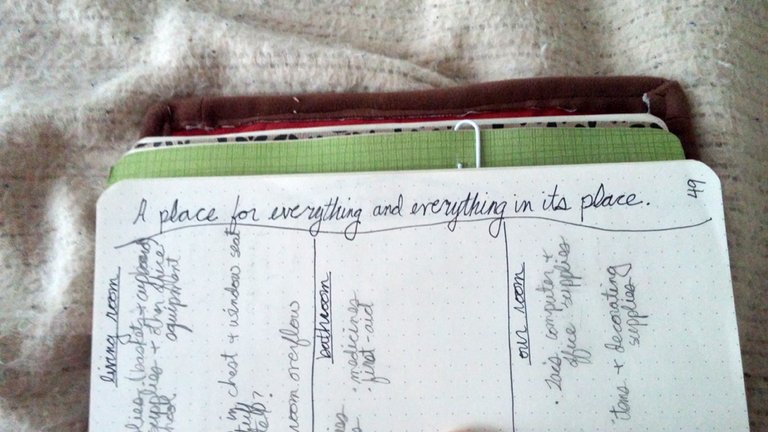 A place for everything and everything in its place.
49
living room
basket + cupboard
supplies + other office
equipment
in chest + window seat
room overflow
bathroom
· medicines
first-aid
our room
computer +
office supplies
items + decorating
supplies